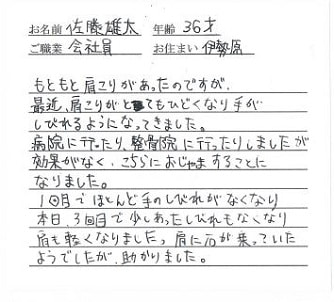 お名前 佐藤雄太 年齢 36才
ご職業 会社員 お住まい 伊勢原
もともと肩こりがあったのですが、
最近、肩こりがとてもひどくなり手が
しびれるようになってきました。
病院に行ったり、整骨院に行ったりしましたが
効果がなく、こちらにおじゃますることに
なりました。
1回目でほとんど手のしびれがなくなり
本日、3回目で少しあったしびれもなくなり
肩も軽くなりました。肩に石が乗っていた
ようでしたが、助かりました。